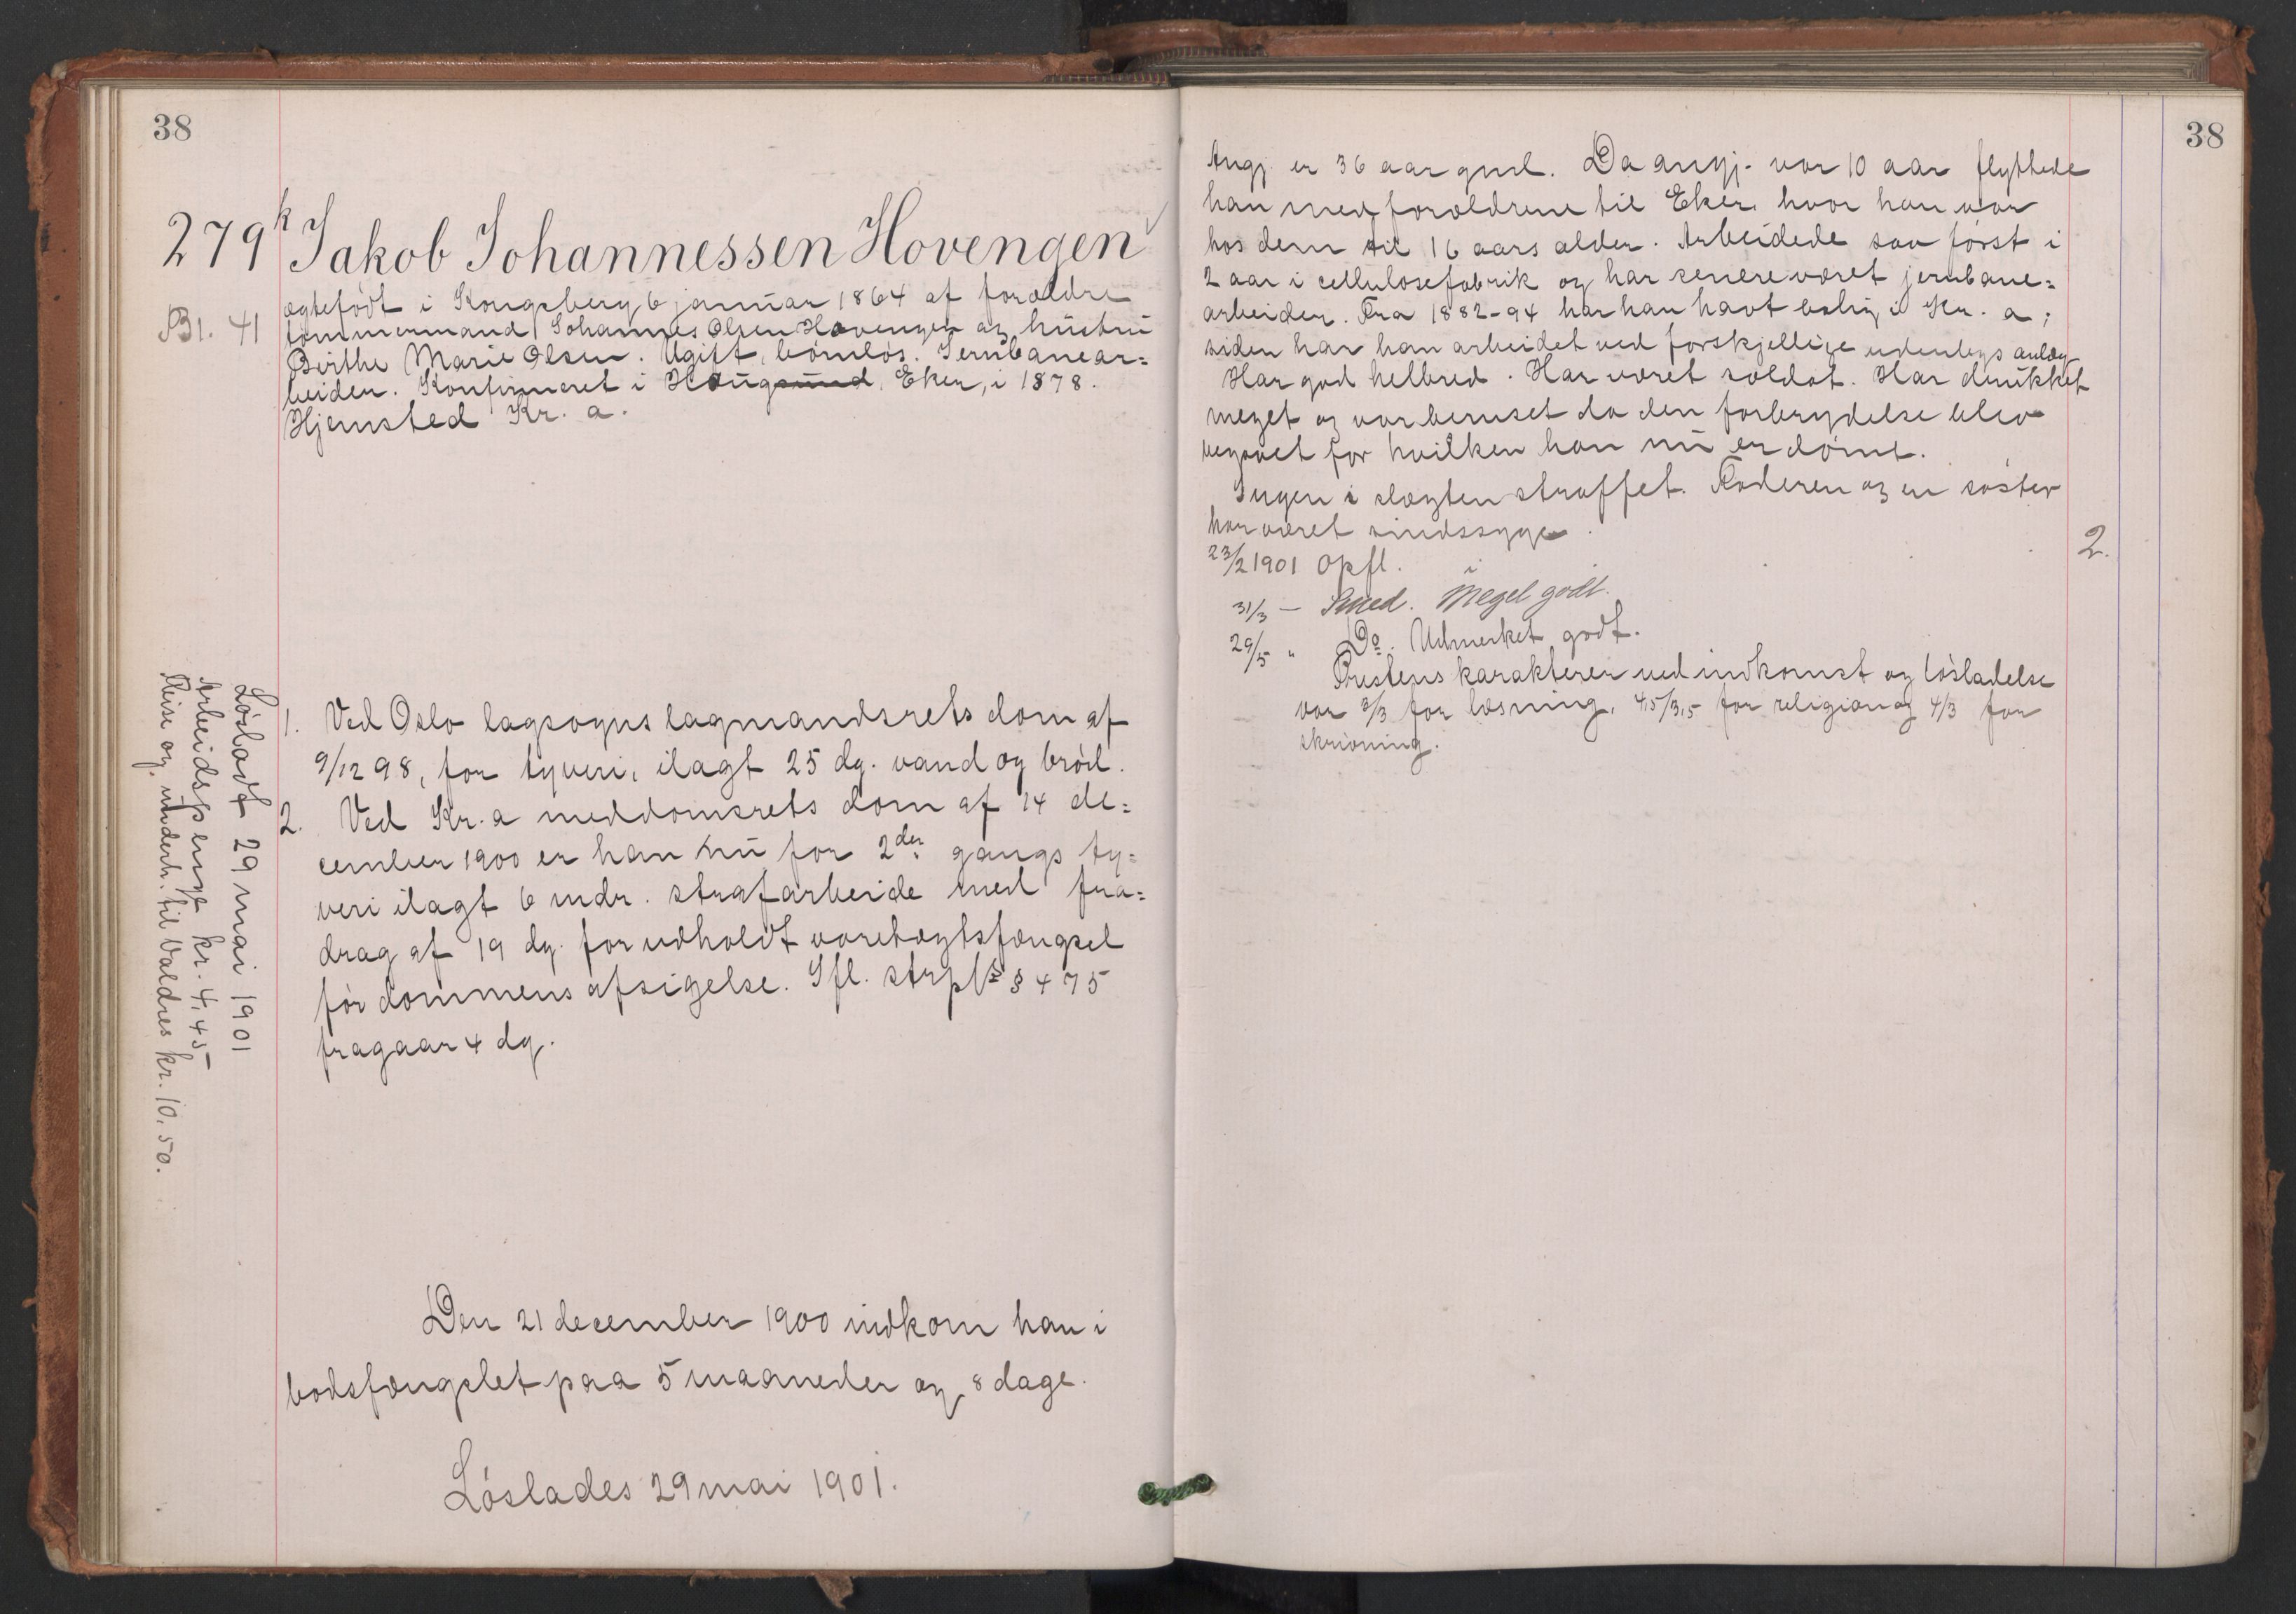 38
279 k Jakob Johannessen Hovengen
B1. 41
ægtefødt i Kongsberg 6 januar 1864 af forældre
tømmermand Johannes Olsen Hovengen og hustru
Birthe Marie Olsen. Ugift, børnløs. Jernbanear=
beider. Konfirmeret i Haugsund, Eker, i 1878.
Hjemsted Kr. a.
1. Ved Oslo lagsogns lagmandsrets dom af
9/12 98, for tyveri, ilagt 25 dg. vand og brød.
2. Ved Kr. a meddomsrets dom af 14 de=
cember 1900 er han nu for 2den gangs ty=
veri ilagt 6 mdr. strafarbeide med fra=
drag af 19 dg. for udholdt varetægtsfængsel
før dommens afsigelse. Ifl. strpl. § 475
fragaar 4 dg.
Løsladt 29 mai 1901
Arbeidspenge kr. 4,45
Reise og underh. til Valdres kr. 10,50.
Den 21 december 1900 indkom han i
bodsfængslet paa 5 maaneder og 8 dage.
Løslades 29 mai 1901.
38
Angj. er 36 aar gml. Da angj. var 10 aar flyttede
han med forældrene til Eker, hvor han var
hos dem til 16 aars alder. Arbeidede saa først i
2 aar i cellulosefabrik og har senere været jernbane=
arbeider. Fra 1882-94 har han havt bolig i Kr. a;
siden har han arbeidet ved forskjellige udenbys anlæg
Har god helbred. Har været soldat. Har drukket
meget og var beruset da den forbrydelse blev
begaaet for hvilken han nu er dømt.
Ingen i slægten straffet. Faderen og en søster
har været sindssyge.
23/2 1901 Opfl. 2.
31/3 — Smed. Meget godt.
29/5 " Do. Udmerket godt.
Prestens karakterer ved indkomst og løsladelse
var 3/3 for læsning, 4,5/3,5 for religion og 4/3 for
skrivning.